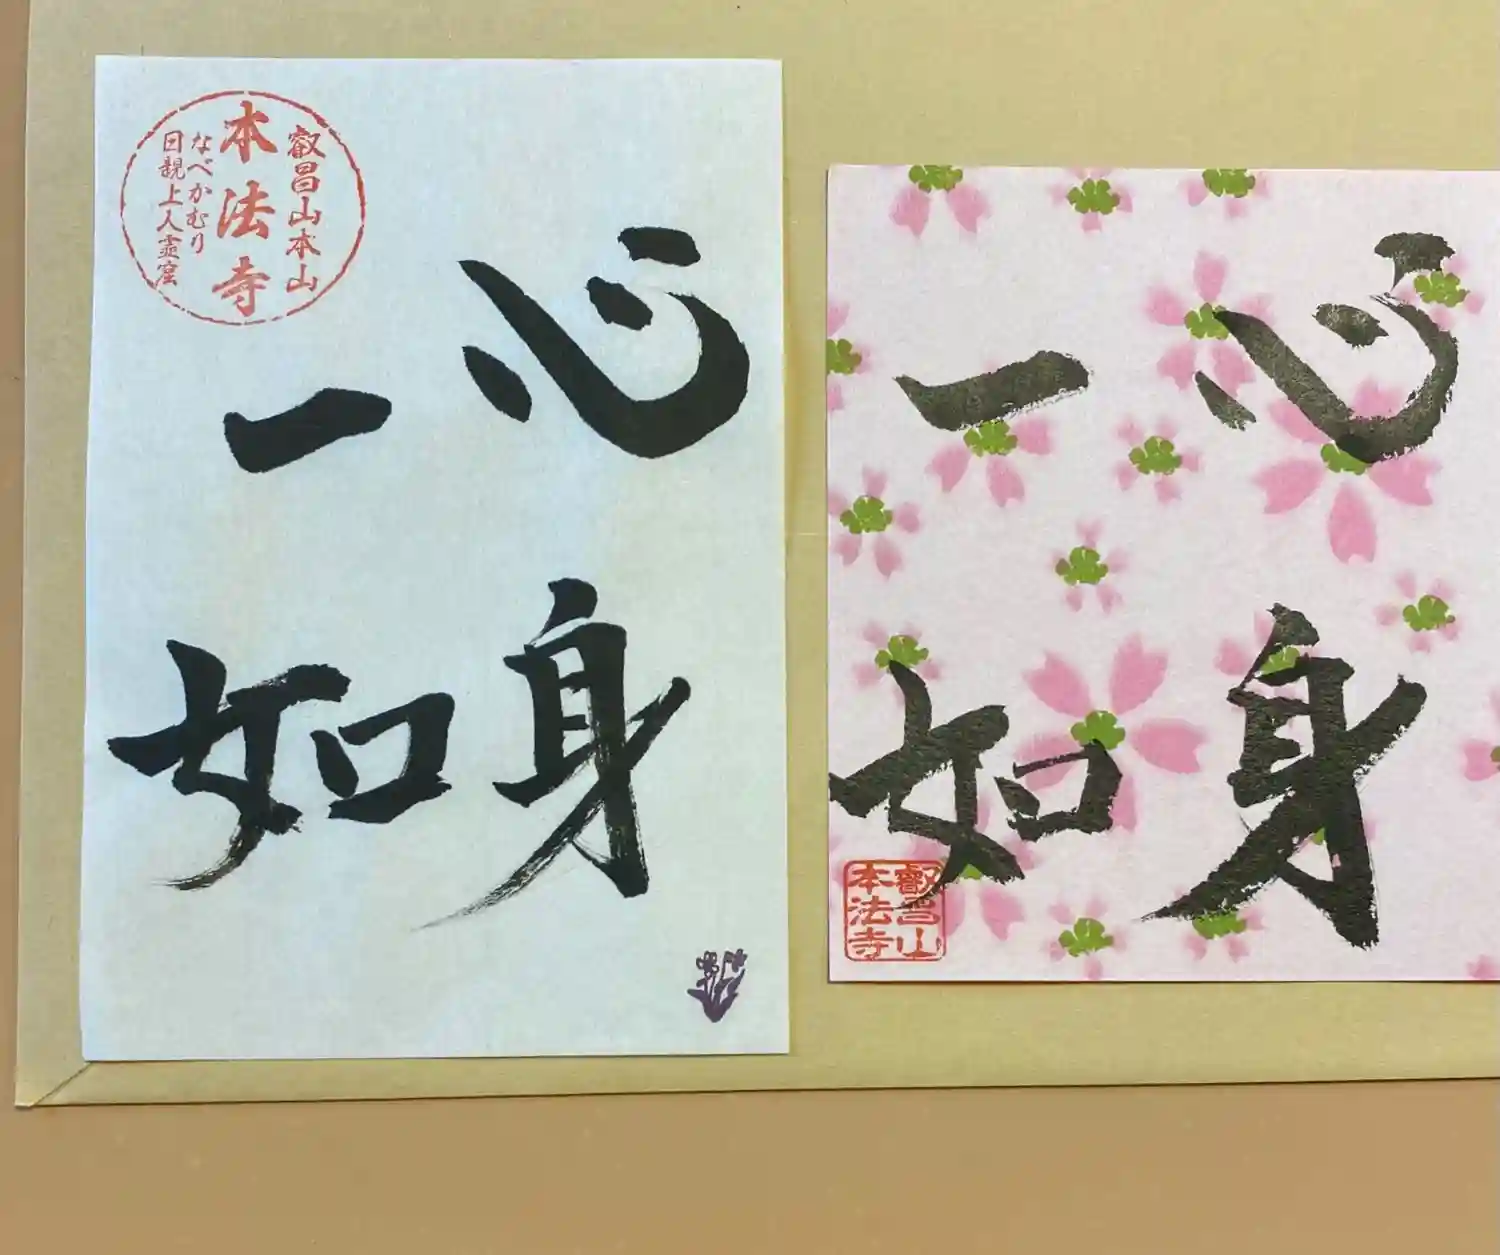 叡昌山本山
本法寺
なべかむり
日親上人霊窟
心身
一如
心身
一如
叡昌山
本法寺